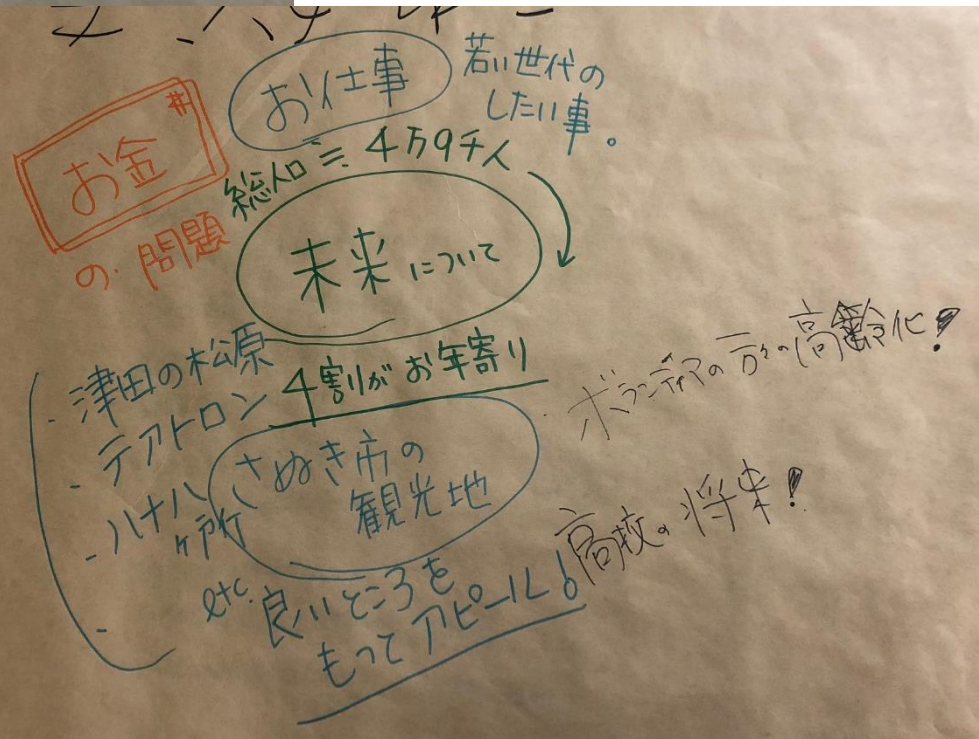 お仕事
若い世代の
したい事。
お金
の問題
総人口≒4万9千人
未来について
4割がお年寄り
・津田の松原
・テアトロン
・八十八
ヶ所
・
etc.
さぬき市の
観光地
良いところを
もってアピール!
ボランティアの方々の高齢化!
高校の将来!